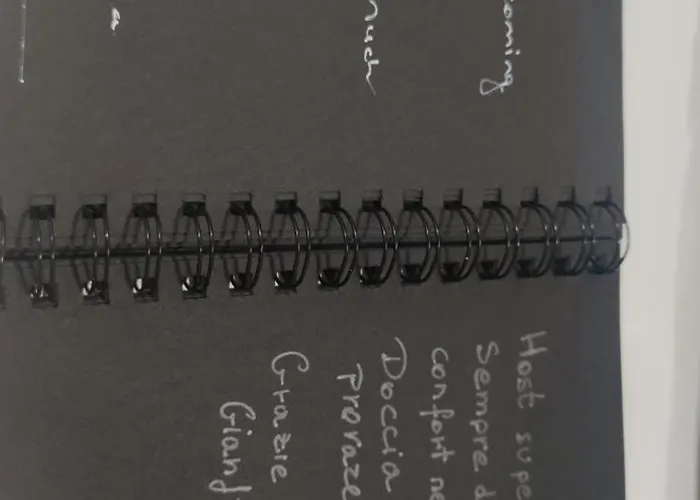 oming
much
a
Host supe
Sempre d
confort ne
Doccia
Provaze
Grazie
Gianf